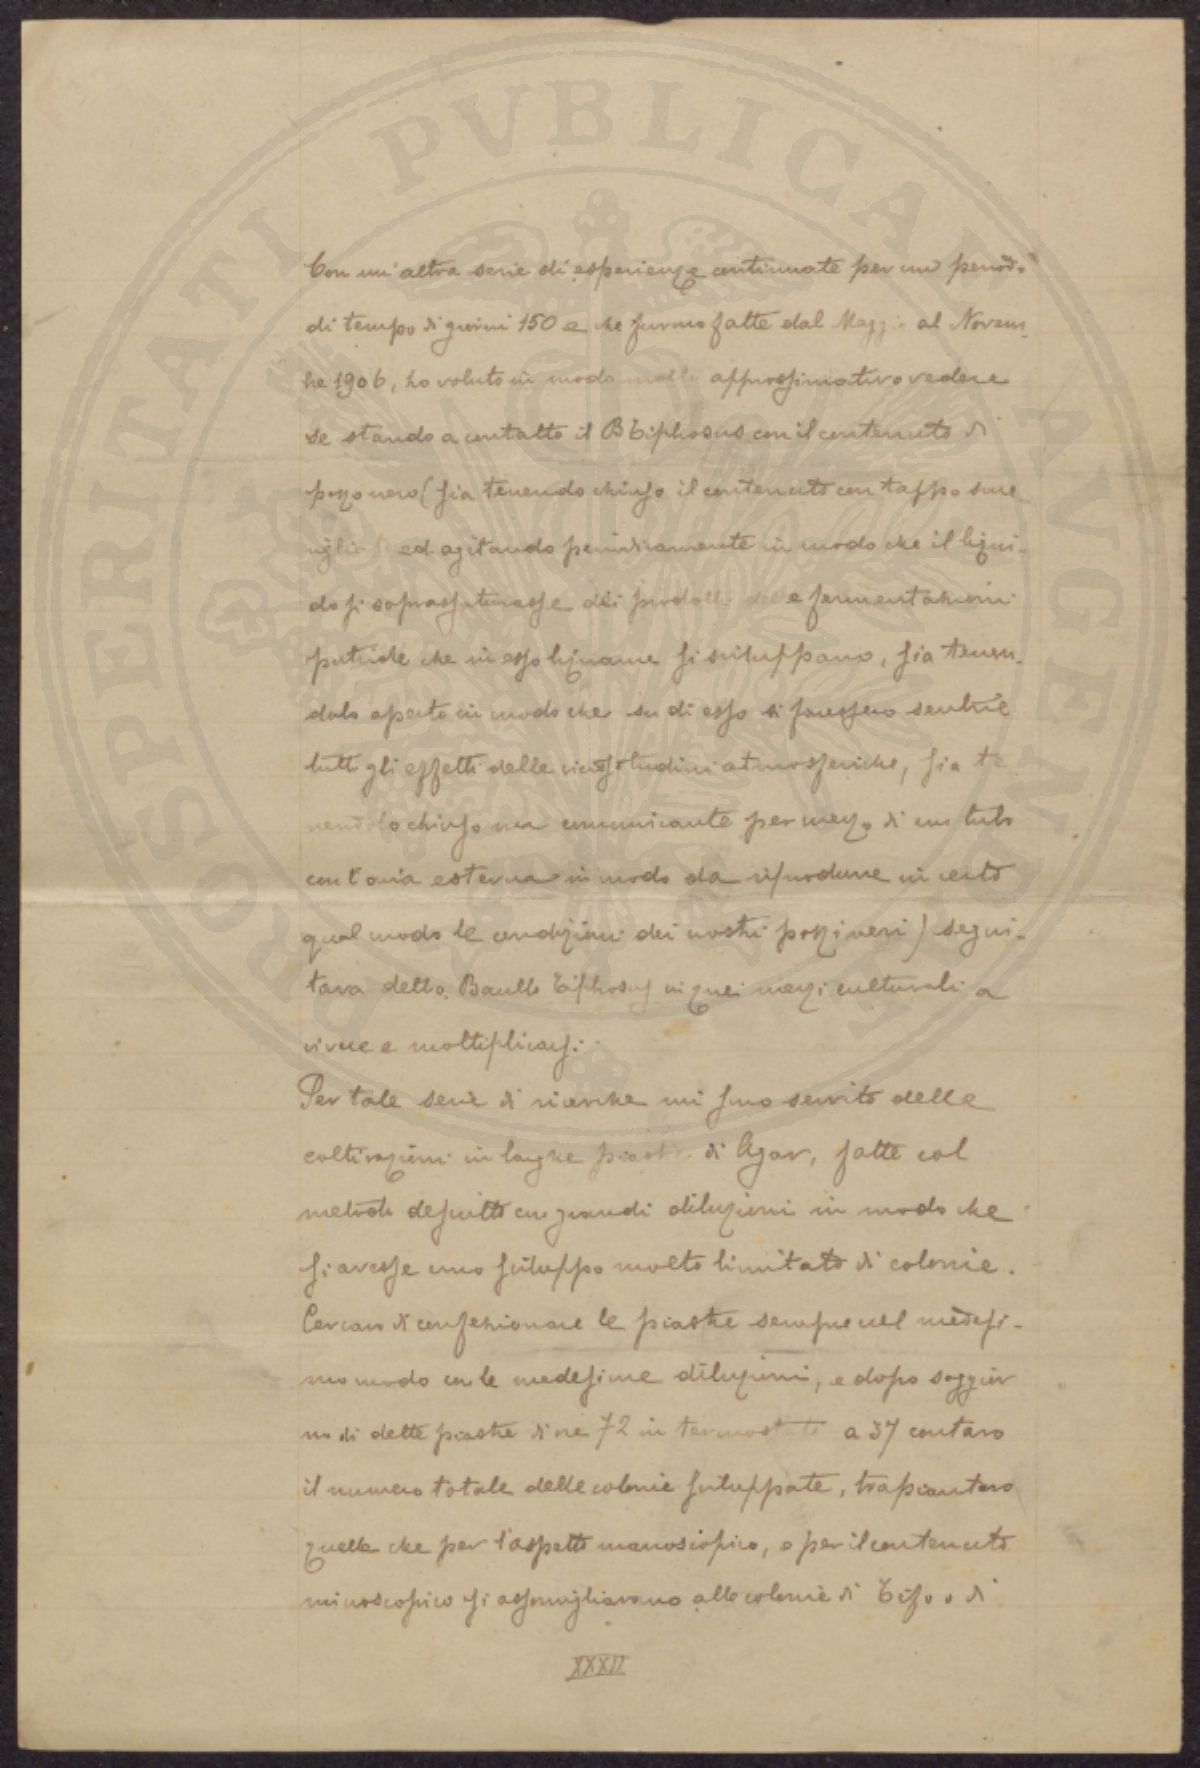 Con un'altra serie di esperienze continuate per un periodo
di tempo di giorni 150 e che furono fatte dal Maggio al Novem-
bre 1906, ho voluto in modo molto approssimativo vedere
se stando a contatto il B Tiphosus con il contenuto di
pozzo nero (sia tenendo chiuso il contenuto con tappo sme
rigliato ed agitando periodicamente in modo che il liqui-
do si soprassaturasse dei prodotti delle fermentazioni
putride che in esso liquame si sviluppano, sia tenen-
dolo aperto in modo che su di esso si facessero sentire
tutti gli effetti delle vicissitudini atmosferiche, sia te
nendolo chiuso ma comunicante per mezzo di un tubo
con l'aria esterna in modo da riprodurre in certo
qual modo le condizioni dei nostri pozzi neri) segui-
tava detto Bacillo Tiphosus in quei mezzi culturali a
vivere e moltiplicarsi.
Per tale serie di ricerche mi sono servito delle
coltivazioni in larghe piastre di Agar, fatte col
metodo descritto con grandi diluzioni in modo che
si avesse uno sviluppo molto limitato di colonie.
Cercavo di confezionare le piastre sempre nel medesi-
mo modo con le medesime diluzioni, e dopo soggior
no di dette piastre di ore 72 in termostato a 37 contavo
il numero totale delle colonie sviluppate, trapiantavo
quelle che per l'aspetto macroscopico, o per il contenuto
microscopico si assomigliavano alle colonie di Tifo o di
XXXII
PROSPERITATI PVBLICAE AVGENDAE